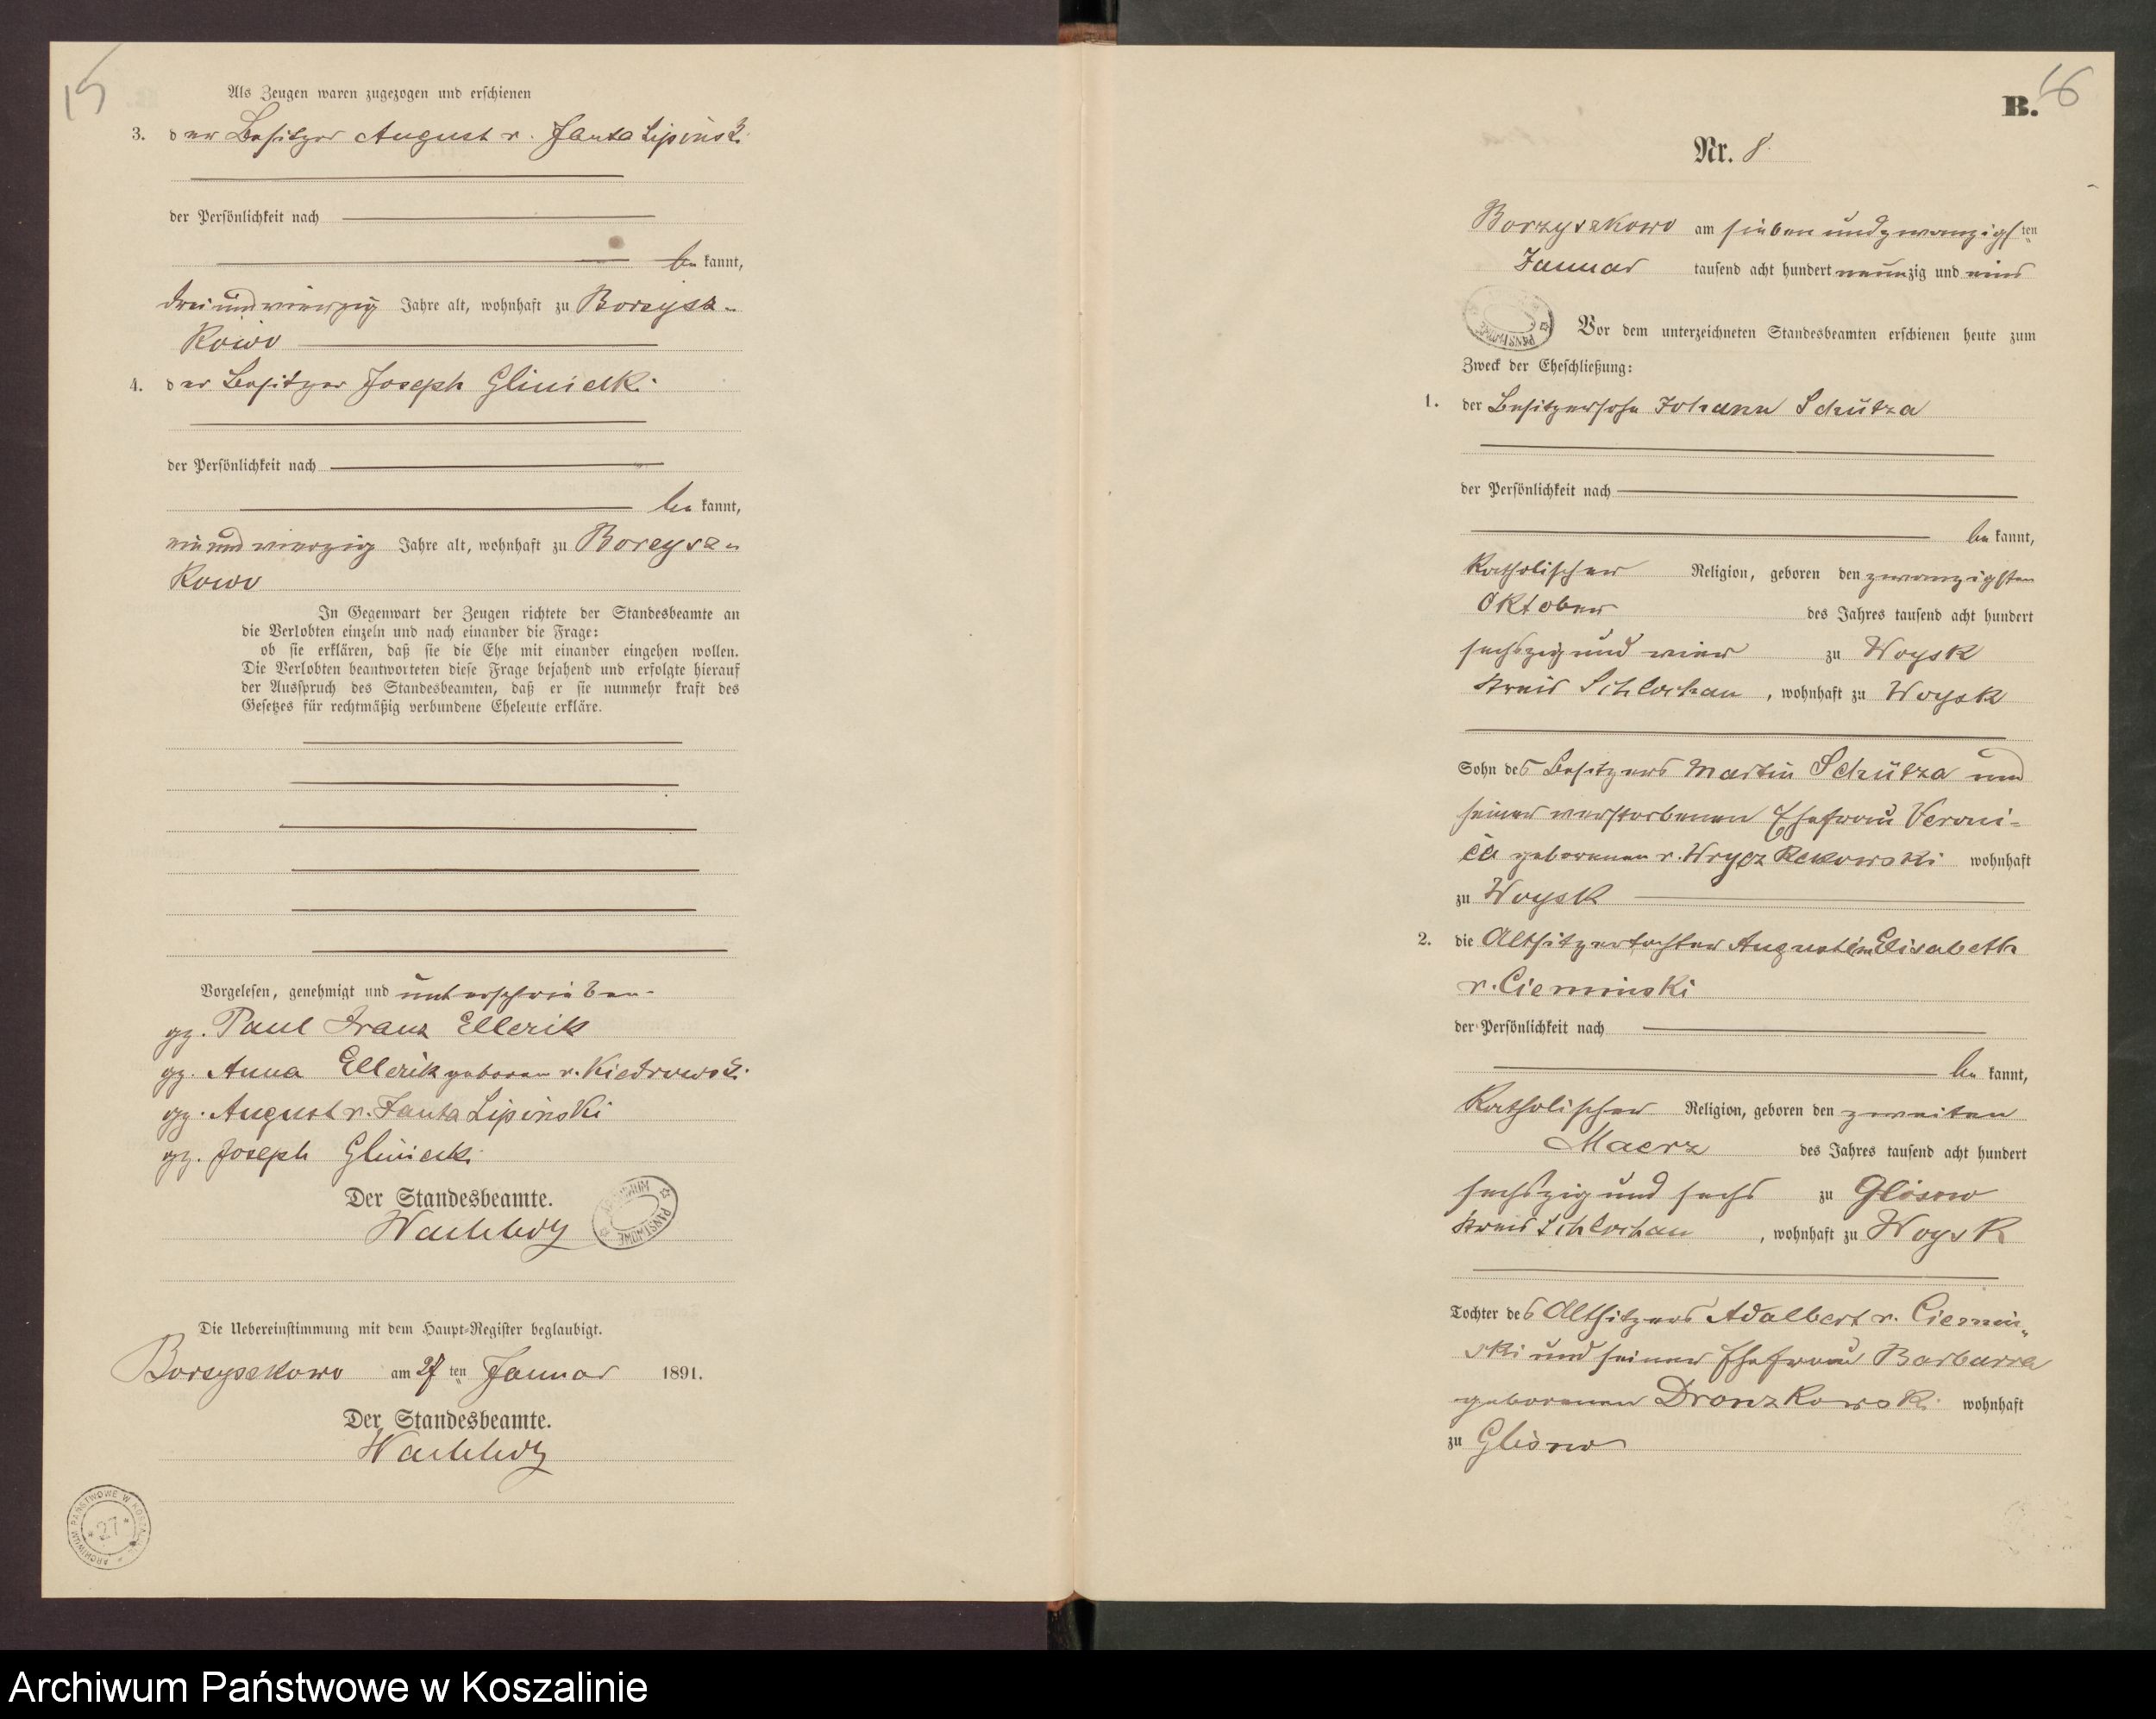 15
Als Zeugen waren zugezogen und erschienen
3. der Besitzer August v. Janta Lipinski
der Persönlichkeit nach
bekannt,
dreiundvierzig Jahre alt, wohnhaft zu Borzysz-
kowo
4. der Besitzer Joseph Glinicki
der Persönlichkeit nach
bekannt,
einundvierzig Jahre alt, wohnhaft zu Borzysz-
kowo
In Gegenwart der Zeugen richtete der Standesbeamte an
die Verlobten einzeln und nach einander die Frage:
ob sie erklären, daß sie die Ehe mit einander eingehen wollen.
Die Verlobten beantworteten diese Frage bejahend und erfolgte hierauf
der Ausspruch des Standesbeamten, daß er sie nunmehr kraft des
Gesetzes für rechtmäßig verbundene Eheleute erkläre.
Vorgelesen, genehmigt und unterschrieben.
gz. Paul Franz Ellerik
gz. Anna Ellerik geboren v. Kiedrowski
gz. August v. Janta Lipinski
gz. Joseph Glinicki
Der Standesbeamte.
Die Uebereinstimmung mit dem Haupt-Register beglaubigt.
Borzyszkowo am 27ten Januar 1891.
Der Standesbeamte.
ARCHIWUM PAŃSTWOWE W KOSZALINIE
27
16
B.
Nr. 8
Borzyszkowo am siebenundzwanzigsten
Januar tausend acht hundert neunzig und eins
Vor dem unterzeichneten Standesbeamten erschienen heute zum
Zweck der Eheschließung:
1. der Besitzersohn Johann Schütza
der Persönlichkeit nach
bekannt,
katholischer Religion, geboren den zwanzigsten
Oktober des Jahres tausend acht hundert
sechszig und vier zu Woysk
Kreis Schlochau, wohnhaft zu Woysk
Sohn des Besitzers Martin Schütza und
seiner verstorbenen Ehefrau Veroni-
ca geborenen v. Wrycz Rekowski wohnhaft
zu Woysk
2. die Altsitzertochter Elisabeth
v. Cieminski
der Persönlichkeit nach
bekannt,
katholischer Religion, geboren den zweiten
Maerz des Jahres tausend acht hundert
sechszig und sechs zu Glisno
Kreis Schlochau, wohnhaft zu Woysk
Tochter des Altsitzers Adalbert v. Ciemin-
ski und seiner Ehefrau Barbarra
geborenen Dronzkowski wohnhaft
zu Glisno
Archiwum Państwowe w Koszalinie